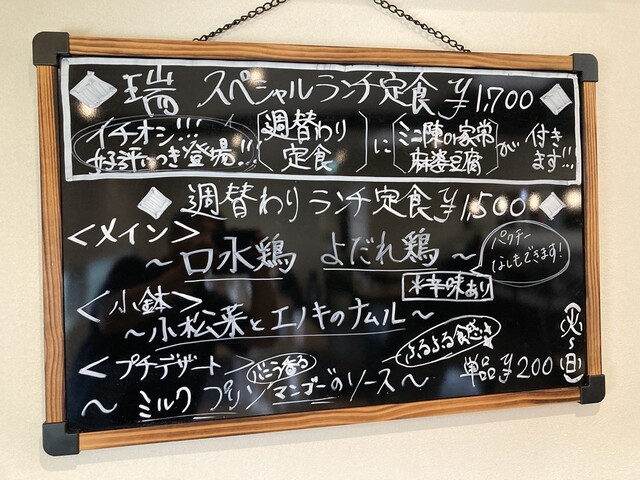 瑞 スペシャルランチ定食 ¥1,700
イチオシ!!!
好評につき登場!!!
週替わり
定食
に
ミニ陳の家常
麻婆豆腐
が
付き
ます!!!
週替わりランチ定食 ¥1,500
<メイン>
~口水鶏 よだれ鶏~
※辛味あり
パクチー
なしもできます!
<小鉢>
~小松菜とエノキのナムル~
<プチデザート
バニラ香る
ぷるぷる食感
~ミルクプリン マンゴーのソース~
単品¥200
(火~日)